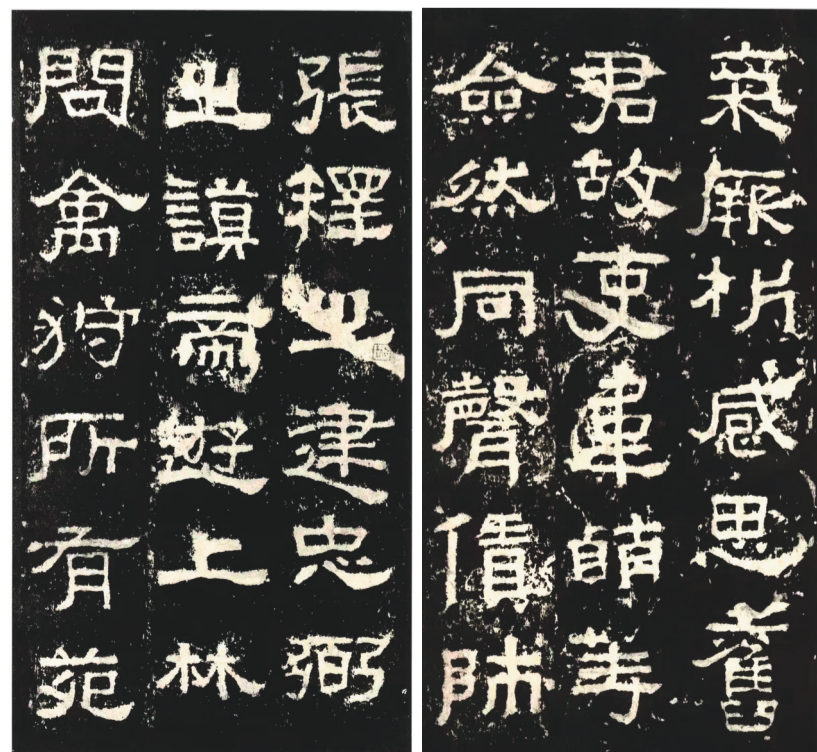 氣厥析感思舊
君故吏韋萌等
僉然同聲賃師
張釋之建忠弼
之謨帝遊上林
問禽狩所有苑